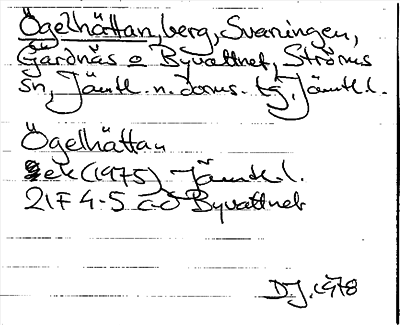 Ögelhättan, berg, Svaningen,
Gärdnäs o Byvattnet, Ströms
sn, Jämtl. n. doms. tg, Jämtl. l.
Ögelhättan
ek (1975) Jämtl. l.
21F 4-5 c-d Byvattnet
D.J. 1978